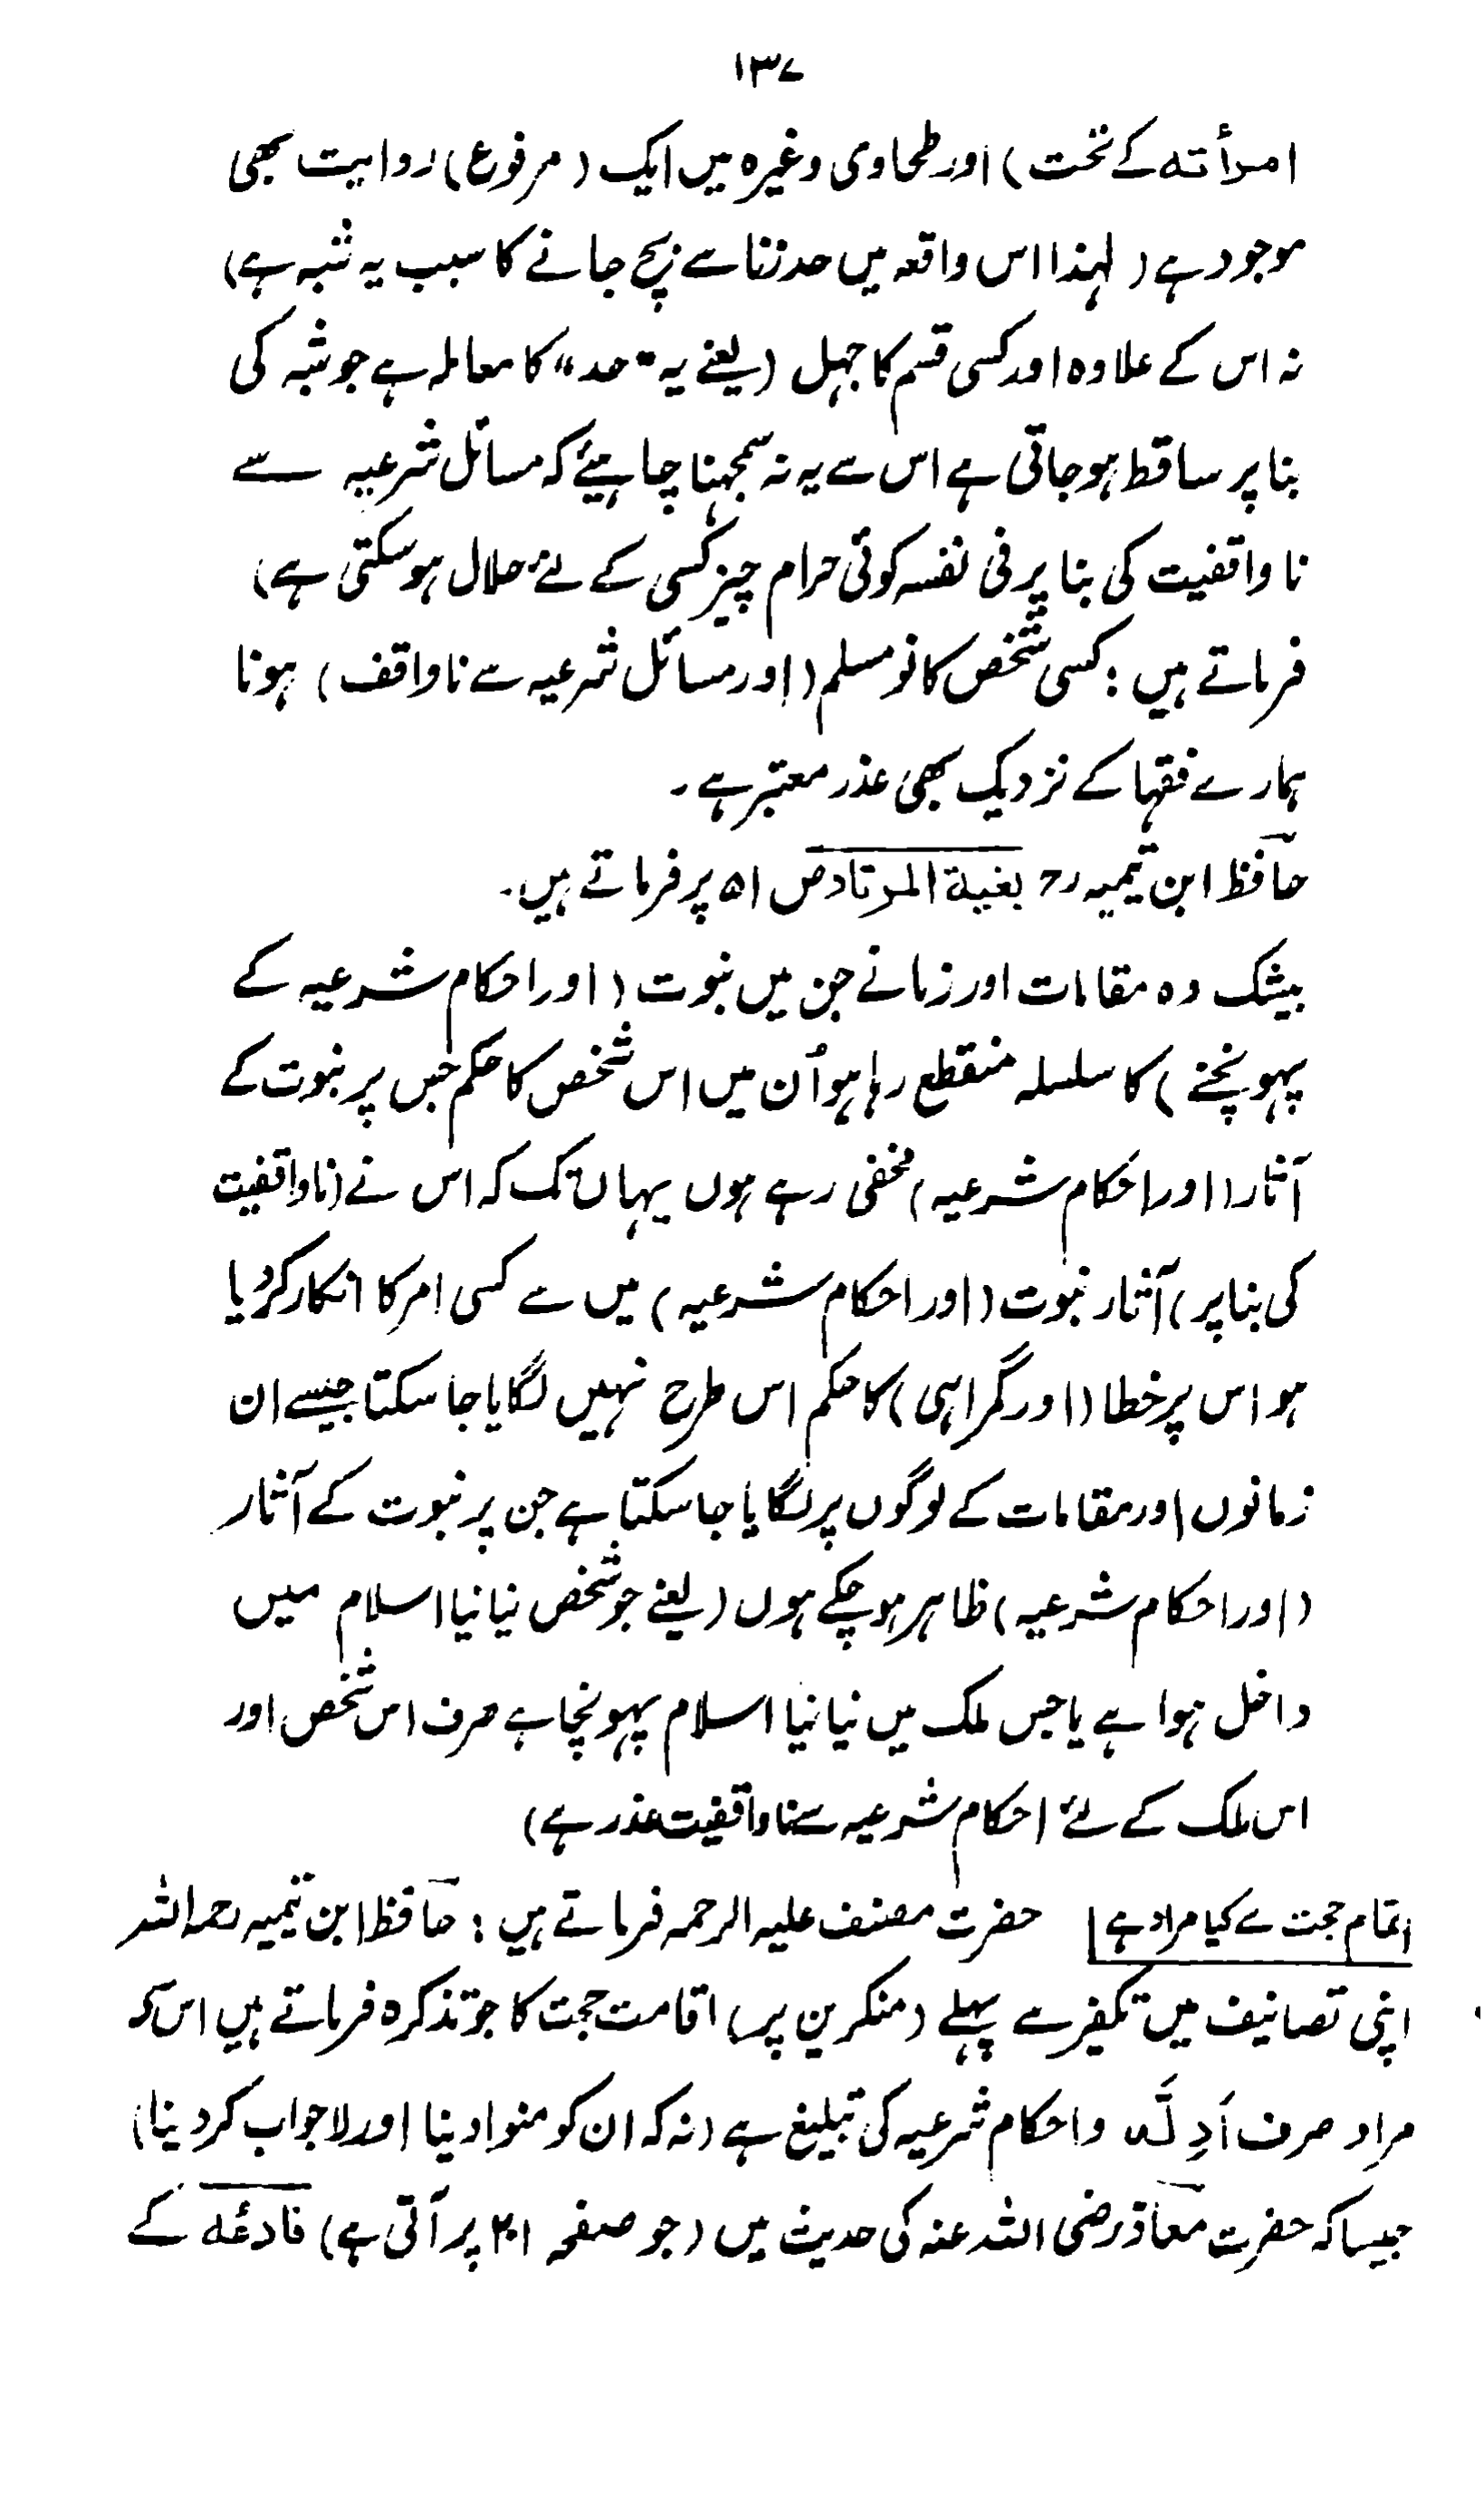 ۱۳۷
امرأته کے تحت) اور طحاوی وغیرہ میں ایک (مرفوع) روایت بھی
موجود ہے (لہٰذا اس واقعہ میں حد زنا سے بچ جانے کا سبب یہ شبہ ہے)
نہ اس کے علاوہ اور کسی قسم کا جہل (یعنے یہ "حد" کا معاملہ ہے جو شبہ کی
بنا پر ساقط ہو جاتی ہے اس سے یہ نہ سمجہنا چاہیئے کہ مسائل شرعیہ سے
ناواقفیت کی بنا پر فی نفسہ کوئی حرام چیز کسی کے لئے حلال ہو سکتی ہے)
فرماتے ہیں: کسی شخص کا نو مسلم (اور مسائل شرعیہ سے ناواقف) ہونا
ہمارے فقہا کے نزدیک بھی عذر معتبر ہے۔
حافظ ابن تیمیہ رح بغية المرتاد ص ۵۱ پر فرماتے ہیں۔
بیشک وہ مقامات اور زمانے جن میں نبوت (اور احکام شرعیہ کے
پہونچنے) کا سلسلہ منقطع رہا ہو اُن میں اس شخص کا حکم جس پر نبوت کے
آثار (اور احکام شرعیہ) مخفی رہے ہوں یہاں تک کہ اس نے (ناواقفیت
کی بنا پر) آثار نبوت (اور احکام شرعیہ) میں سے کسی امر کا انکار کر دیا
ہو اس پر خطا (اور گمراہی) کا حکم اس طرح نہیں لگایا جا سکتا جیسے ان
زمانوں اور مقامات کے لوگوں پر لگایا جا سکتا ہے جن پر نبوت کے آثار
(اور احکام شرعیہ) ظاہر ہو چکے ہوں (یعنے جو شخص نیا نیا اسلام میں
داخل ہوا ہے یا جس ملک میں نیا نیا اسلام پہونچا ہے صرف اس شخص اور
اس ملک کے لئے احکام شرعیہ سے ناواقفیت عذر ہے)
اتمام حجت سے کیا مراد ہے حضرت مصنف علیہ الرحمہ فرماتے ہیں: حافظ ابن تیمیہ رحمہ اللہ
اپنی تصانیف میں تکفیر سے پہلے (منکرین پر) اقامت حجت کا جو تذکرہ فرماتے ہیں اس کو
مراد صرف اَدِلَّہ واحکام شرعیہ کی تبلیغ ہے (نہ کہ ان کو منوا دینا اور لاجواب کر دینا)
جیسا کہ حضرت معاذ رضی اللہ عنہ کی حدیث میں (جو صفحہ ۲۰۱ پر آتی ہے) فادعه کے